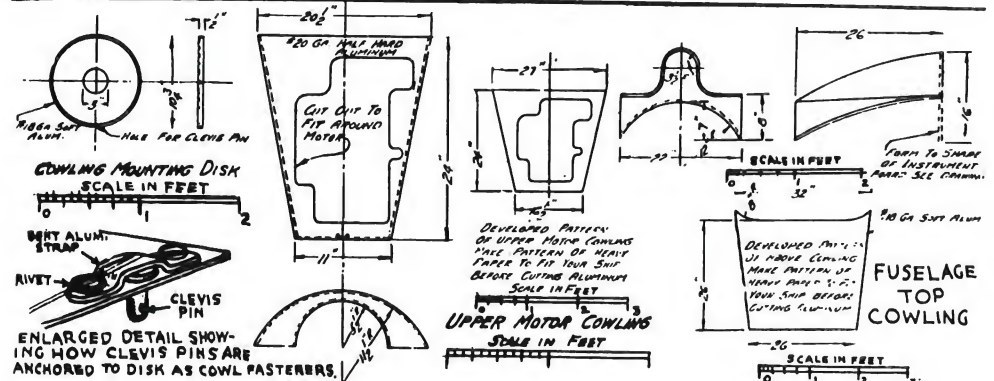 1/2"
5"
#18GA SOFT
ALUM.
HOLE FOR CLEVIS PIN
COWLING MOUNTING DISK
SCALE IN FEET
0 1 2
BENT ALUM.
STRAP
RIVET
CLEVIS
PIN
ENLARGED DETAIL SHOW-
ING HOW CLEVIS PINS ARE
ANCHORED TO DISK AS COWL FASTENERS.
20 1/2"
#20 GA HALF HARD
ALUMINUM
CUT OUT TO
FIT AROUND
MOTOR
24"
11"
27"
DEVELOPED PATTERN
OF UPPER MOTOR COWLING
MAKE PATTERN OF HEAVY
PAPER TO FIT YOUR SHIP
BEFORE CUTTING ALUMINUM
SCALE IN FEET
0 1 2 3
UPPER MOTOR COWLING
SCALE IN FEET
22"
26"
16"
FORM TO SHAPE
OF INSTRUMENT
SEE DRAWING
SCALE IN FEET
0 1 2
32"
#18 GA SOFT ALUM
DEVELOPED PATTERN
OF ABOVE COWLING
MAKE PATTERN OF
HEAVY PAPER TO FIT
YOUR SHIP BEFORE
CUTTING ALUMINUM
26"
26"
FUSELAGE
TOP
COWLING
SCALE IN FEET
0 1 2